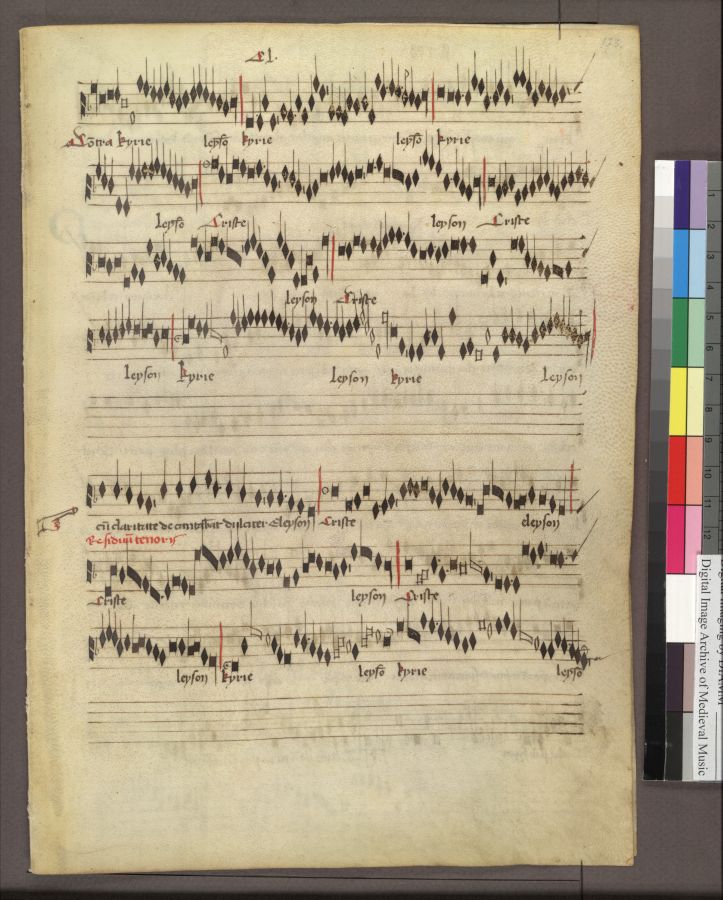 173
Cōtra kyrie lepsō kyrie lepsō kyrie
lepsō Criste leyson Criste
leyson Criste
leyson kyrie leyson kyrie leyson
Eleyson Criste eleyson
Residuū tenoris
Criste leyson Criste
leyson kyrie lepsō kyrie lepsō
1
2
3
5
6
7
8
9
10
11
12
Digital Image Archive of Medieval Music